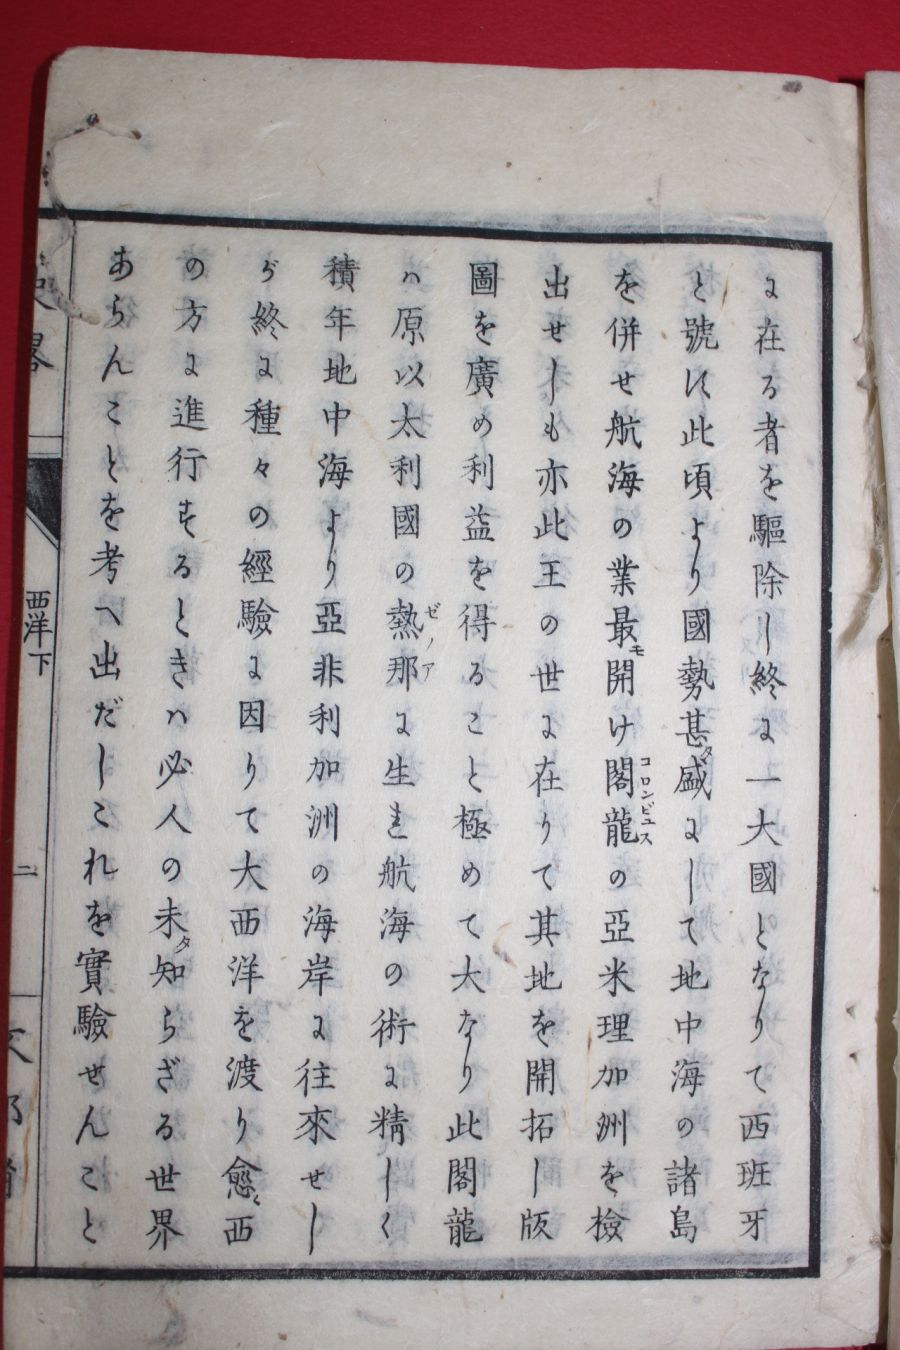 に在る者を驅除し終に一大國となりて西班牙
と號す此頃より國勢甚タ盛にして地中海の諸島
を併せ航海の業最モ開け閣龍コロンビュスの亞米理加洲を檢
出せしも亦此王の世に在りて其地を開拓し版
圖を廣め利益を得ること極めて大なり此閣龍
ハ原以太利國の熱那ゼノアに生れ航海の術に精しく
積年地中海より亞非利加洲の海岸に往來せし
が終に種々の經驗に因りて大西洋を渡り愈〻西
の方に進行するときハ必人の未タ知らざる世界
あらんことを考へ出だしこれを實驗せんこと
史畧
西洋下
二
文部省